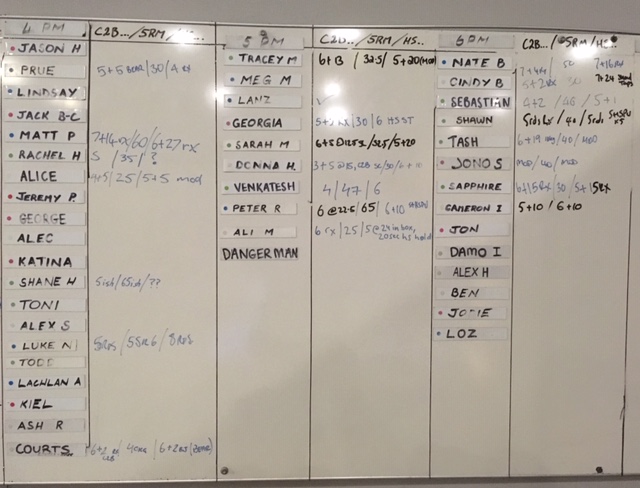 4 PM C2B... / 5RM / HS..
JASON H
PRUE 5+5 / 30 / 4 rx
LINDSAY
JACK B-C
MATT P 7+14 rx / 60 / 6+27 rx
RACHEL H 5 / 35 / ?
ALICE 4+5 / 25 / 5+5 mod
JEREMY P.
GEORGE
ALEC
KATINA
SHANE H 5ish / 65ish / ??
TONI
ALEX S
LUKE N 5RDS / 55KG / 8RDS
TODD
LACHLAN A
KIEL
ASH R
COURTS 6+2 rx / 40KG / 6+2
5 PM C2B... / 5RM / HS..
TRACEY M 6+13 / 32.5 / 5+20 (mod)
MEG M
LANZ
GEORGIA 5+5 rx / 30 / 6 HSST
SARAH M 6+5 / 32.5 / 5+20
DONNA H. 3+5 / 30 / 6+10
VENKATESH 4 / 47 / 6
PETER R 6 @ 22.5 / 65 / 6+10
ALI M 6 rx / 25 / 5 @ 2x in box, 20sec hs hold
DANGERMAN
6 PM C2B... / 5RM / HS..
NATE B 7+4rx / 50 7+16rx
CINDY B 5+2rx 30 7+24
SEBASTIAN 4+2 / 46 / 5+1
SHAWN 5rds / 40 / 5rds
TASH 6+19 / 40 / mod
JONO S mod / 40 / mod
SAPPHIRE 6+15Rx / 30 / 5+15Rx
CAMERON I 5+10 / 6+10
JON
DAMO I
ALEX H
BEN
JODIE
LOZ